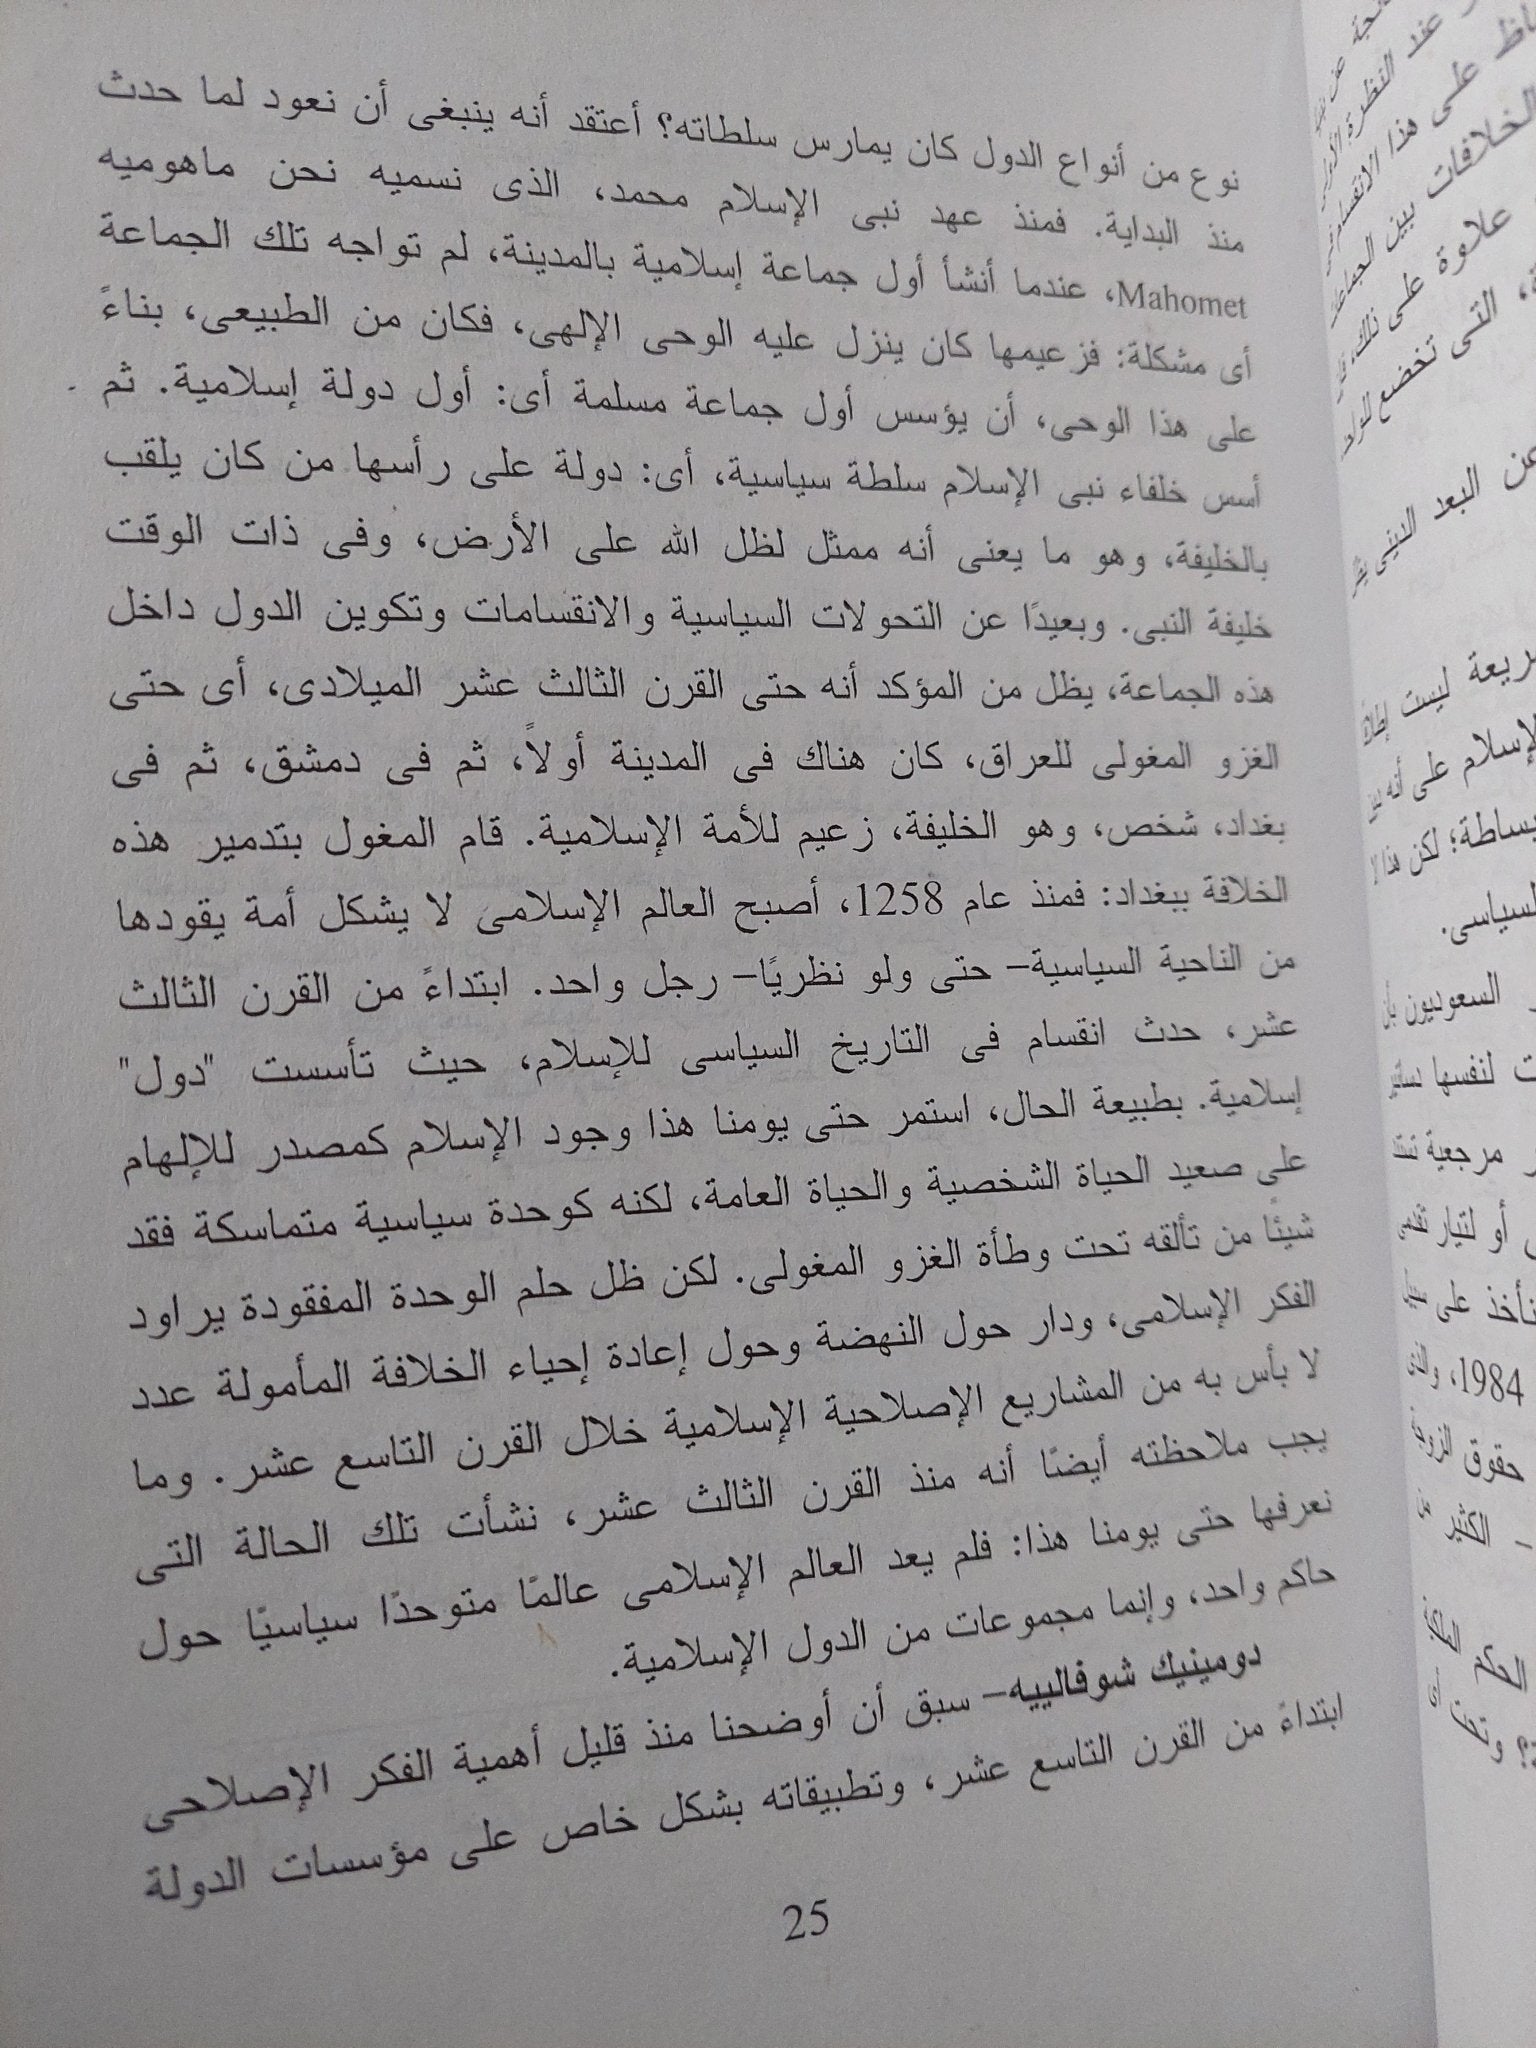 نوع من أنواع الدول كان يمارس سلطاته؟ أعتقد أنه ينبغى أن نعود لما حدث
منذ البداية. فمنذ عهد نبى الإسلام محمد، الذى نسميه نحن ماهوميه
Mahomet، عندما أنشأ أول جماعة إسلامية بالمدينة، لم تواجه تلك الجماعة
أى مشكلة: فزعيمها كان ينزل عليه الوحى الإلهى، فكان من الطبيعى، بناءً
على هذا الوحى، أن يؤسس أول جماعة مسلمة أى: أول دولة إسلامية. ثم
أسس خلفاء نبى الإسلام سلطة سياسية، أى: دولة على رأسها من كان يلقب
بالخليفة، وهو ما يعنى أنه ممثل لظل الله على الأرض، وفى ذات الوقت
خليفة النبى. وبعيدًا عن التحولات السياسية والانقسامات وتكوين الدول داخل
هذه الجماعة، يظل من المؤكد أنه حتى القرن الثالث عشر الميلادى، أى حتى
الغزو المغولى للعراق، كان هناك فى المدينة أولاً، ثم فى دمشق، ثم فى
بغداد، شخص، وهو الخليفة، زعيم للأمة الإسلامية. قام المغول بتدمير هذه
الخلافة ببغداد: فمنذ عام 1258، أصبح العالم الإسلامى لا يشكل أمة يقودها
من الناحية السياسية– حتى ولو نظريًا– رجل واحد. ابتداءً من القرن الثالث
عشر، حدث انقسام فى التاريخ السياسى للإسلام، حيث تأسست "دول"
إسلامية. بطبيعة الحال، استمر حتى يومنا هذا وجود الإسلام كمصدر للإلهام
على صعيد الحياة الشخصية والحياة العامة، لكنه كوحدة سياسية متماسكة فقد
شيئًا من تألقه تحت وطأة الغزو المغولى. لكن ظل حلم الوحدة المفقودة يراود
الفكر الإسلامى، ودار حول النهضة وحول إعادة إحياء الخلافة المأمولة عدد
لا بأس به من المشاريع الإصلاحية الإسلامية خلال القرن التاسع عشر. وما
يجب ملاحظته أيضًا أنه منذ القرن الثالث عشر، نشأت تلك الحالة التى
نعرفها حتى يومنا هذا: فلم يعد العالم الإسلامى عالمًا متوحدًا سياسيًا حول
حاكم واحد، وإنما مجموعات من الدول الإسلامية.
دومينيك شوفالييه– سبق أن أوضحنا منذ قليل أهمية الفكر الإصلاحى
ابتداءً من القرن التاسع عشر، وتطبيقاته بشكل خاص على مؤسسات الدولة
25
عند النظرة
على هذا الانقسام
الخلافات بين
علاوة على ذلك،
التى تخضع
عن البعد الدينى
ليست
الإسلام على أنه
بساطة؛ لكن هذا لا
السياسى.
السعوديون بأن
لنفسها
مرجعية
أو لتيار
نأخذ على سبيل
1984، والذى
حقوق الزوجة
الكثير من
الحكم